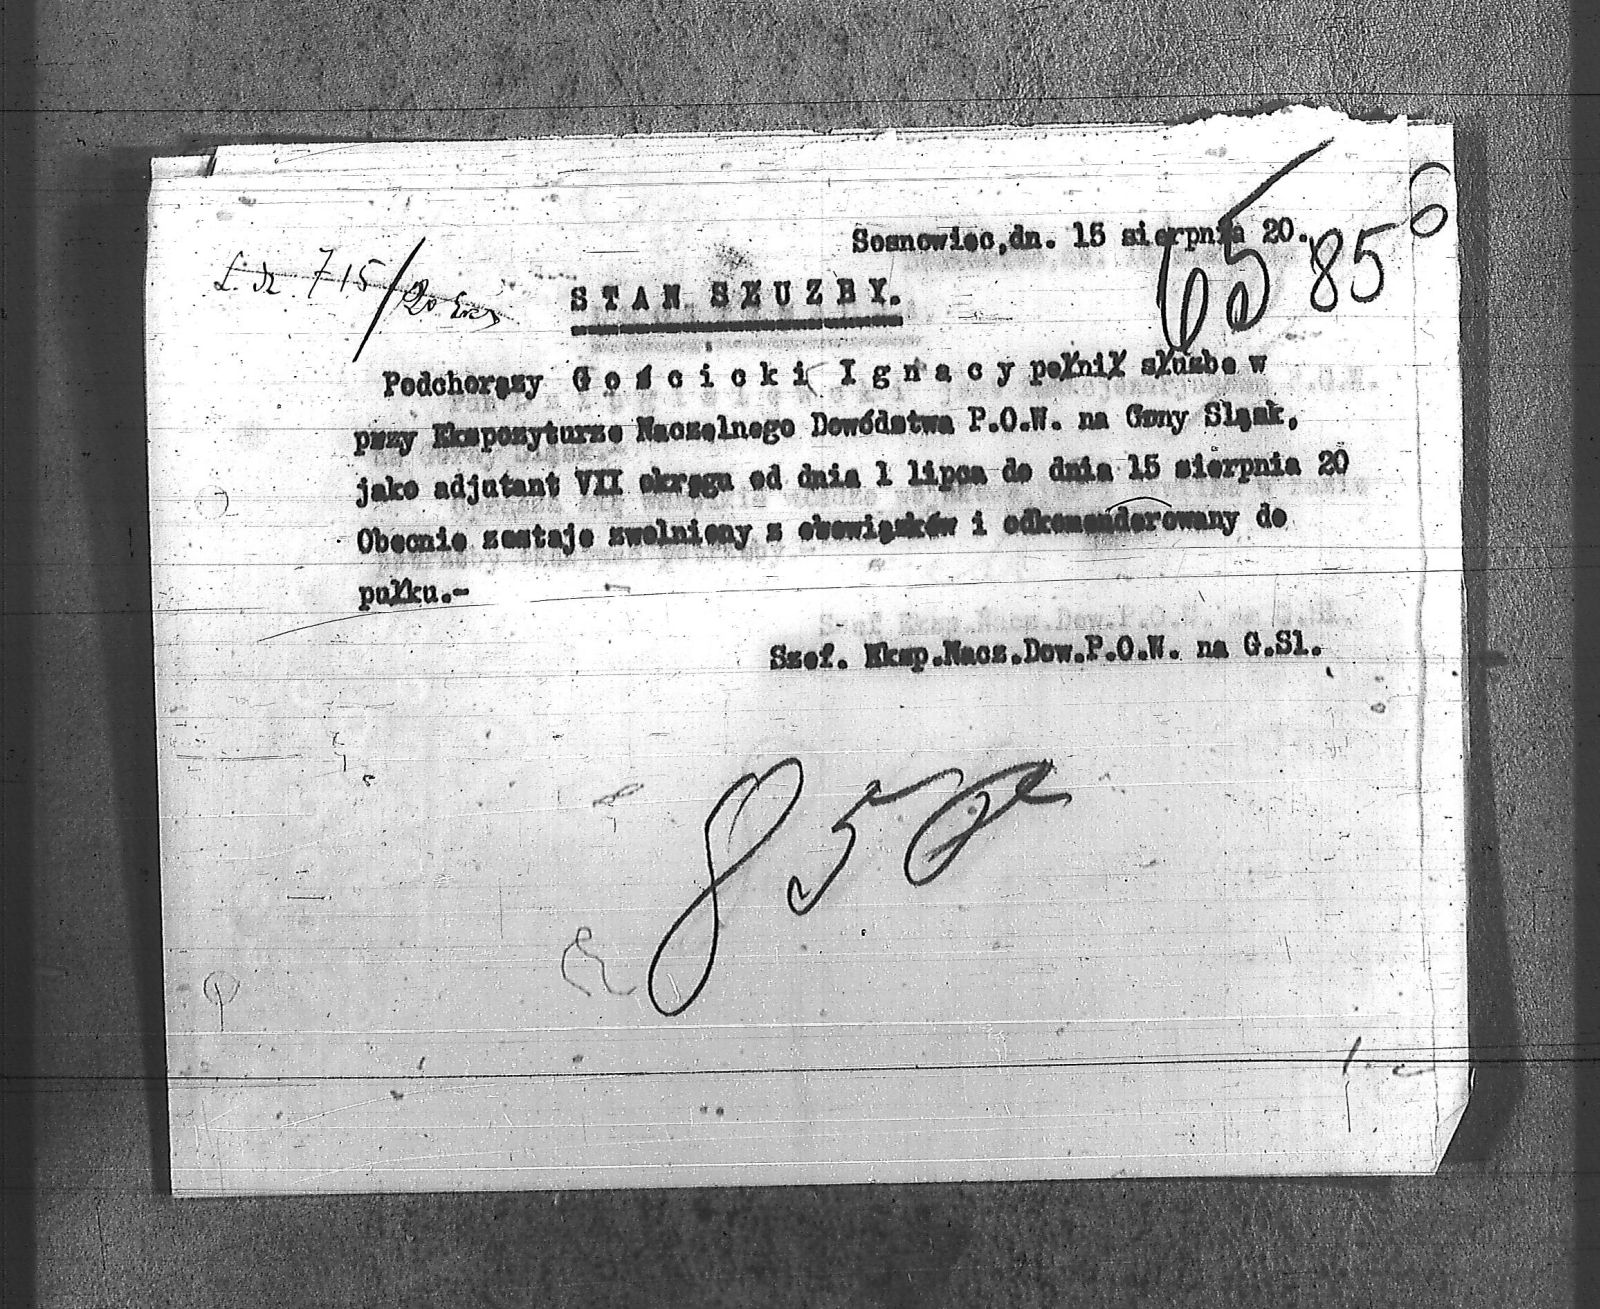 Sosnowiec,dn. 15 sierpnia 20.
65 85 6
L. dz. 715/20
STAN SŁUZBY.
Podchorązy Gościcki Ignacy pełnił słuzbe w
przy Ekspozyturze Naczelnego Dowództwa P.O.W. na Gorny Sląsk,
jako adjutant VII okręgu od dnia 1 lipca do dnia 15 sierpnia 20
Obecnie zostaje zwolniony z obowiązków i odkomenderowany do
pułku.-
Szef. Eksp.Nacz.Dow.P.O.W. na G.Sl.
85